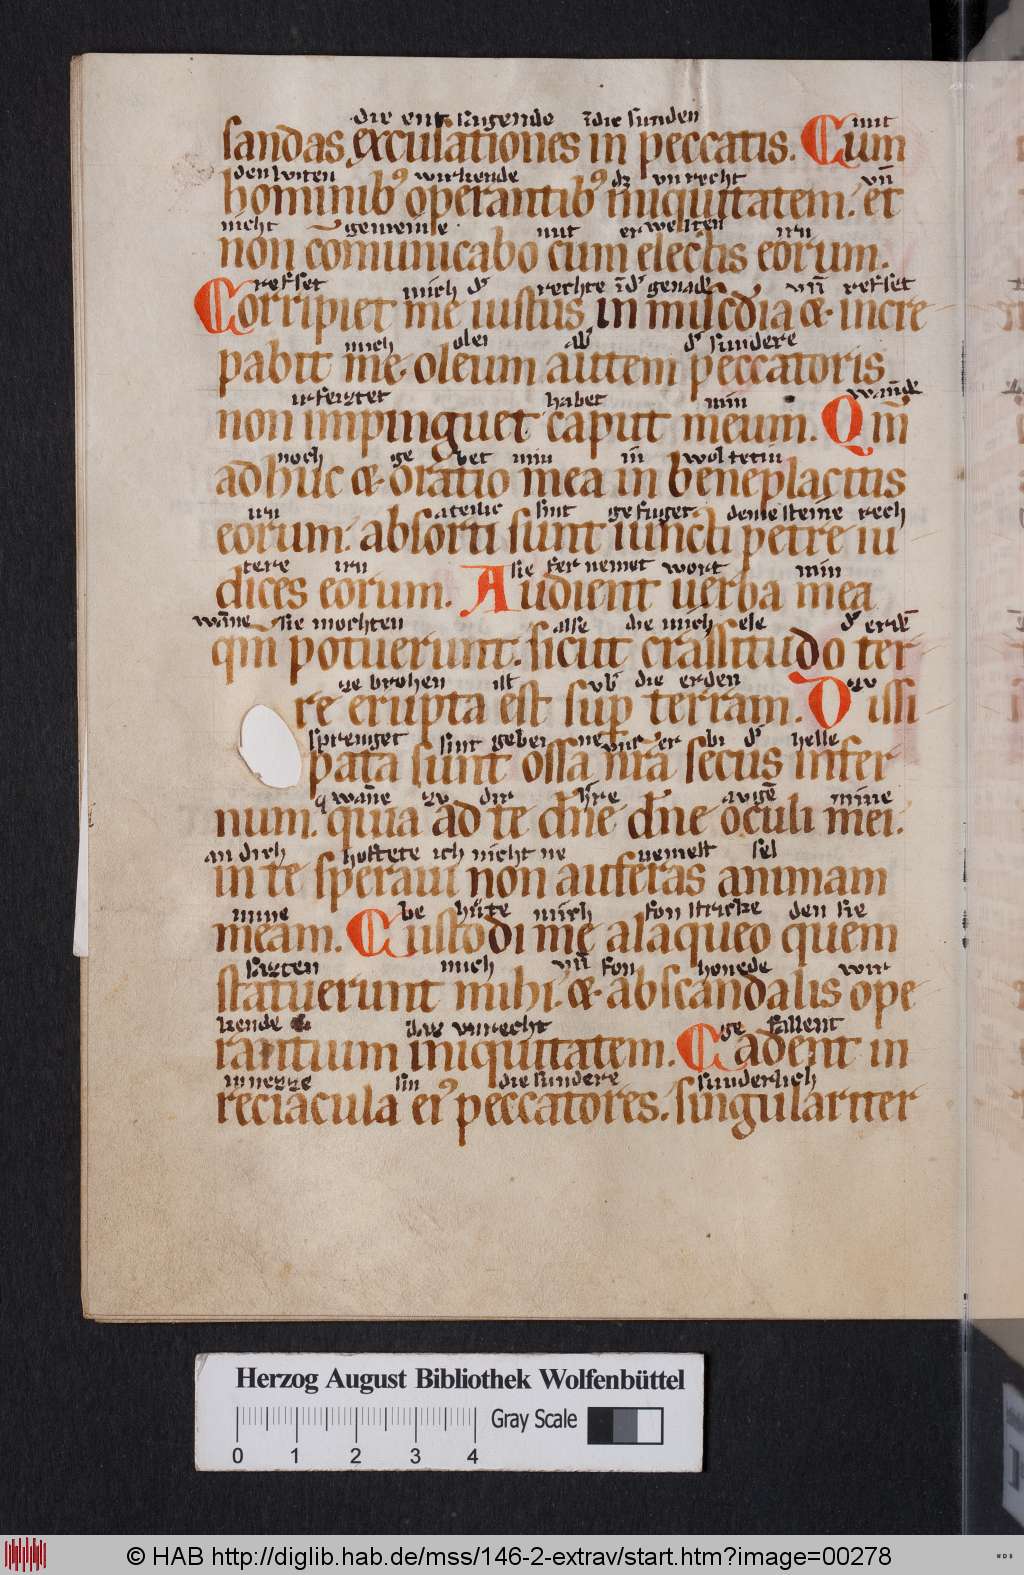 die ent sagende ı̄die sunden mit
sandas excusationes in peccatis. Cum
den luten wirkende dz vnrecht vn̄
hominib᷒ operantib᷒ iniquitatem. et
nicht gemeinſe mit er welten iru
non cōmunicabo cum electis eorum.
refset mich d᷒ rechte ı̄d᷒ genade vn̄ refset
Corripiet me iustus in mis̄c̄dia & incre
mich olei ab᷒ d᷒ sundere
pabit me. oleum autem peccatoris
habet min wan̄de
non impinguet caput meum. Qm̄
noch ge bet min in̄ wol tetin
adhuc & oratio mea in beneplacitis
iru sint ge fuget deme steine rech
eorum. absorti sunt iuncti petre iu
tere iru sie fer nemet wort min
dices eorum. Audient uerba mea
wāne sie mochten alse die mich ele d᷒ erdē
qm̄ potuerunt. sicut crassitudo ter
ge brohen ist vb᷒ die erden zv
re erupta est sup terram. Dissi
spreinget sint gebei ne vnser bi d᷒ helle
pata sunt ossa nr̄a secus infer
wan̄e zv dir h᷒re avgē mine
num. quia ad te dn̄e dn̄e oculi mei.
an dich hoffete ich nicht ne nemest sel
in te speraui non auferas animam
mine be hůte mich fon stricke den sie
meam. Custodi me a laqueo quem
sazten mich vn̄ fon honede wir
statuerunt mihi. & ab scandalis ope
kende daz vnrecht ge fallent
rantium iniquitatem. Cadent in
in nezze sin die sundere sunderlich
reciacula ei᷒ peccatores. singulariter
Herzog August Bibliothek Wolfenbüttel
Gray Scale
0 1 2 3 4
© HAB http://diglib.hab.de/mss/146-2-extrav/start.htm?image=00278